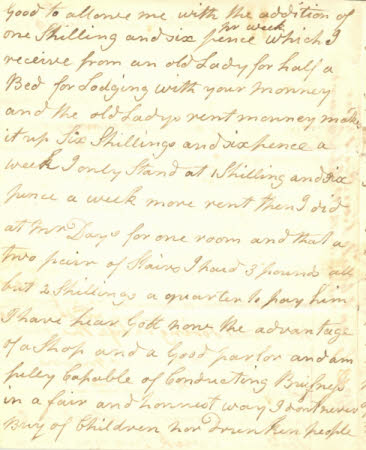 Good to allowe me with the addition of
pr week
one Shilling and six pence which I
receive from an old Lady for half a
Bed for Lodging with your monney
and the old Ladys rent monney make
it up Six Shillings and sixpence a
week I only Stand at 1 Shilling and six
pence a week more rent then I did
at Mr Days for one room and that a
two pair of Stairs I haid 3 pound all
but 2 Shillings a quarter to pay him
I have hear Gott now the advantage
of a Shop and a Good parlor and am
fully Capable of Conducting Buisness
in a fair and honnest way I dont never
Buy of Children nor Drunken people